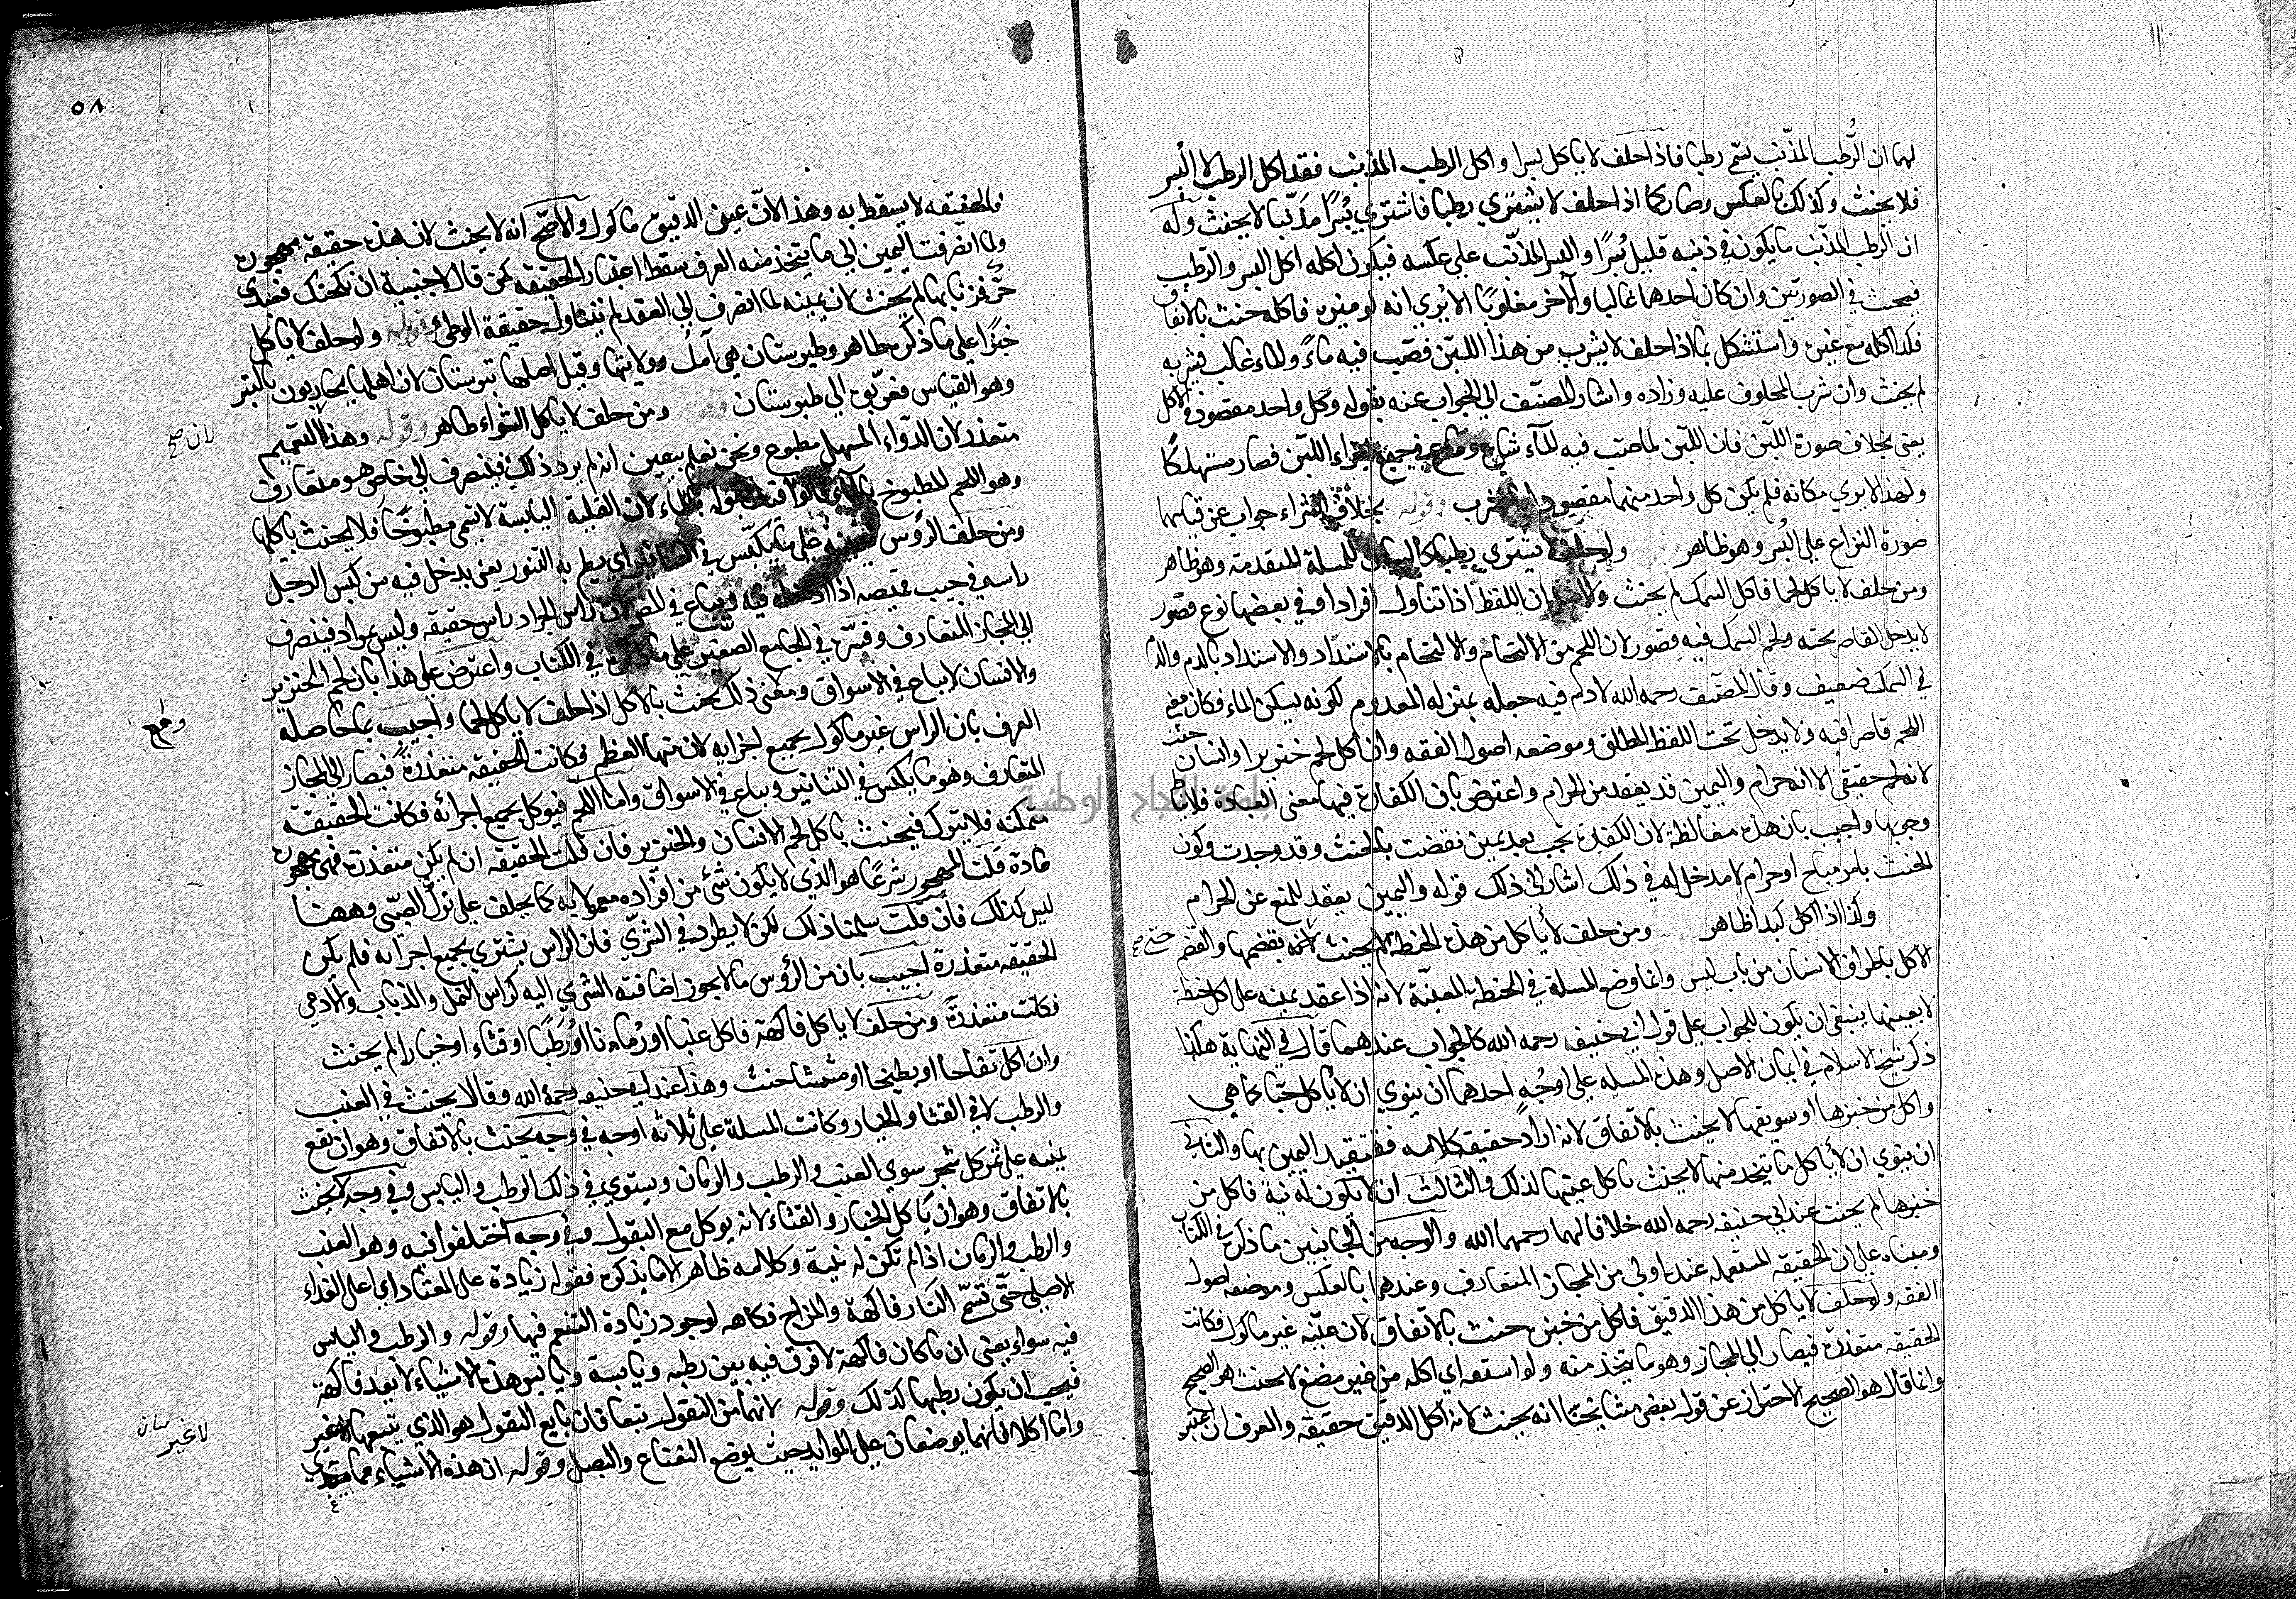 لهما ان الرطب المذنب يسمى رطبا فاذا حلف لا ياكل بسرا واكل الرطب المذنب فقد اكل الرطب لا البسر
فلا يحنث وكذلك بالعكس وصار كما اذا حلف لا يشتري رطبا فاشترى بسرا مذنبا لا يحنث وله
ان الرطب المذنب ما يكون في ذنبه قليل بسرا والبسر المذنب على عكسه فيكون اكله اكل البسر والرطب
فيحنث في الصورتين وان كان احدهما غالبا والآخر مغلوبا الا يرى انه لو ميزه فاكله حنث بالاتفاق
فكذا اكله مع غيره واستشكل بما اذا حلف لا يشرب من هذا اللبن فصب فيه ماء والماء غالب فشربه
لم يحنث وان شرب المحلوف عليه وزاده واشار المصنف الى الجواب عنه بقوله وكل واحد مقصود في الاكل
يعني بخلاف صورة اللبن فان اللبن لما صب فيه الماء شاع في جميع اجزاء اللبن فصار مستهلكا
ولهذا لا يرى مكانه فلم يكن كل واحد منهما مقصودا بالشرب وقوله بخلاف الشراء جواب عن قياسهما
صورة النزاع على البسر وهو ظاهر ولو حلف لا يشتري رطبا كالبيان للمسلة المتقدمة وهو ظاهر
ومن حلف لا ياكل لحما فاكل السمك لم يحنث والاصل ان اللفظ اذا تناول افرادا وفي بعضها نوع قصور
لا يدخل القاصر تحته ولحم السمك فيه قصور لان اللحم من الالتحام والالتحام بالاشتداد والاشتداد بالدم والدم
في السمك ضعيف وقال المصنف رحمه الله لا دم فيه جعله بمنزلة المعدوم لكونه يسكن الماء فكان معنى
اللحم قاصرا فيه ولا يدخل تحت اللفظ المطلق وموضعه اصول الفقه وان اكل لحم خنزير او انسان حنث
لانه لحم حقيقي الا انه حرام واليمين قد يعقد من الحرام واعترض بان الكفارة فيها معنى العبادة فلا يناط
وجوبها واجيب بان هذه مغالطة لان الكفارة تجب بعد يمين نقضت بالحنث وقد وجدت وكون
الحنث بامر مباح او حرام لا مدخل له في ذلك اشار الى ذلك قوله واليمين يعقد للمنع عن الحرام
وكذا اذا اكل كبدا ظاهر ومن حلف لا ياكل من هذه الحنطة لم يحنث حتى يقضمها والقضم
الاكل باطراف الاسنان من باب لبس وانما وضع المسلة في الحنطة المعينة لانه اذا عقد يمينه على اكل حنطة
لا بعينها ينبغي ان يكون الجواب على قول ابي حنيفه رحمه الله كالجواب عندهما قال في النهاية هكذا
ذكر شيخ الاسلام في ايمان الاصل وهذه المسله على اوجه احدهما ان ينوي ان لا ياكل حبا كما هي
واكل من خبزها او سويقها لا يحنث بالاتفاق لانه اراد حقيقة كلامه فتقيد اليمين بها والثاني
ان ينوي ان لا ياكل ما يتخذ منها لا يحنث باكل عينها لذلك والثالث ان لا يكون له نية فاكل من
خبزها لم يحنث عند ابي حنيفه رحمه الله خلافا لهما رحمهما الله والوجه من الجانبين ما ذكره في الكتاب
ومبناه على ان الحقيقه المستعمله عنده اولى من المجاز المتعارف وعندهما بالعكس وموضعه اصول
الفقه ولو حلف لا ياكل من هذا الدقيق فاكل من خبزه حنث بالاتفاق لان عينه غير ماكول فكانت
الحقيقه متعذرة فيصار الى المجاز وهو ما يتخذ منه ولو استفه اي اكله من غير مضغ لا يحنث هو الصحيح
وانما قال هو الصحيح لاحتراز عن قول بعض مشايخنا انه يحنث لانه اكل الدقيق حقيقة والعرف ان اعتبر
حتى صح
٥٨
فالحقيقه لا يسقط به وهذا لان عين الدقيق ماكول والاصح انه لا يحنث لان هذه حقيقة مهجورة
ولما انصرفت اليمين الى ما يتخذ منه العرف سقط اعتبار الحقيقة كمن قال لاجنبية ان نكحتك فعبدي
حر فزنا بها لم يحنث لان يمينه لما انصرف الى العقد لم يتناول حقيقة الوطئ وقوله ولو حلف لا ياكل
خبزا على ما ذكره ظاهر وطبرستان هي آمل وولايتها وقيل اصلها تبرستان لان اهلها يحاربون بالتبر
وهو الفاس فعربوه الى طبرستان وقوله ومن حلف لا ياكل الشواء ظاهر وقوله وهذا لان التعميم
متعذر لان الدواء المسهل مطبوخ ونحن نعلم بيقين انه لم يرد ذلك فينصرف الى خاص هو متعارف
وهو اللحم المطبوخ بالماء بقوله بالماء لان القلية اليابسة لا تسمى مطبوخا فلا يحنث باكلها
ومن حلف الرؤس فيمينه على ما يكبس في التنانير اي يطم به التنور يعني يدخل فيه من كبس الرجل
راسه في جيب قميصه اذا ادخله فيه ويباع في المصر لان راس الجراد راس حقيقه وليس بمراد فينصرف
الى المجاز المتعارف وفسره في الجامع الصغير على ما ذكره في الكتاب واعترض على هذا بان لحم الخنزير
والانسان لا يباع في الاسواق ومعنى ذلك يحنث بالاكل اذا حلف لا ياكل لحما واجيب بما حاصله
العرف بان الراس غير ماكول بجميع اجزايه لان منها العظم فكانت الحقيقه متعذرة فيصار الى المجاز
المتعارف وهو ما يكبس في التنانير ويباع في الاسواق واما اللحم فيوكل بجميع اجزائه فكانت الحقيقة
متمكنه فلا يترك فيحنث باكل لحم الانسان والخنزير فان قلت الحقيقه ان لم يكن متعذرة فهي مهجورة
عادة قلت المهجور شرعا هو الذي لا يكون شئ من افراده معمولا به كما يحلف على ترك الصبي وههنا
ليس كذلك فان قلت سلمنا ذلك لكن لا يطرد في الشرى فان الراس يشترى بجميع اجزايه فلم يكن
الحقيقه متعذرة اجيب بان من الرؤس ما لا يجوز اضافته الشرى اليه كراس النمل والذباب والادمي
فكانت متعذرة ومن حلف لا ياكل فاكهة فاكل عنبا او رمانا او رطبا او قثاء او خيارا لم يحنث
وان اكل تفاحا او بطيخا او مشمشا حنث وهذا عند ابي حنيفه رحمه الله وقالا يحنث في العنب
والرطب لا في القثا والخيار وكانت المسلة على ثلاثه اوجه في وجه يحنث بالاتفاق وهو ان يقع
يمينه على ثمر كل شجر سوى العنب والرطب والرمان ويستوي في ذلك الرطب واليابس وفي وجه لا يحنث
بالاتفاق وهو ان ياكل الخيار والقثاء لانه يوكل مع البقول وفي وجه اختلفوا فيه وهو العنب
والرطب والرمان اذا لم تكن له نية وكلامه ظاهر الا ما يذكره فقوله زيادة على المعتاد اي على الغداء
الاصلي حتى تسمى النار فاكهة والمزاح فكاهه لوجود زيادة التنعم فيها وقوله والرطب واليابس
فيه سواء يعني ان ما كان فاكهة لا فرق فيه بين رطبه ويابسة ويابس هذه الاشياء لا يعد فاكهة
فيجب ان يكون رطبها كذلك وقوله لانهما من البقول تبعا فان بايع البقول هو الذي يبيعهما لا غير
واما اكلا فانهما يوضعان على الموايد حيث يوضع النعناع والبصل وقوله ان هذه الاشياء مما يتغذى
لان صح
وقع
لا غير بيان